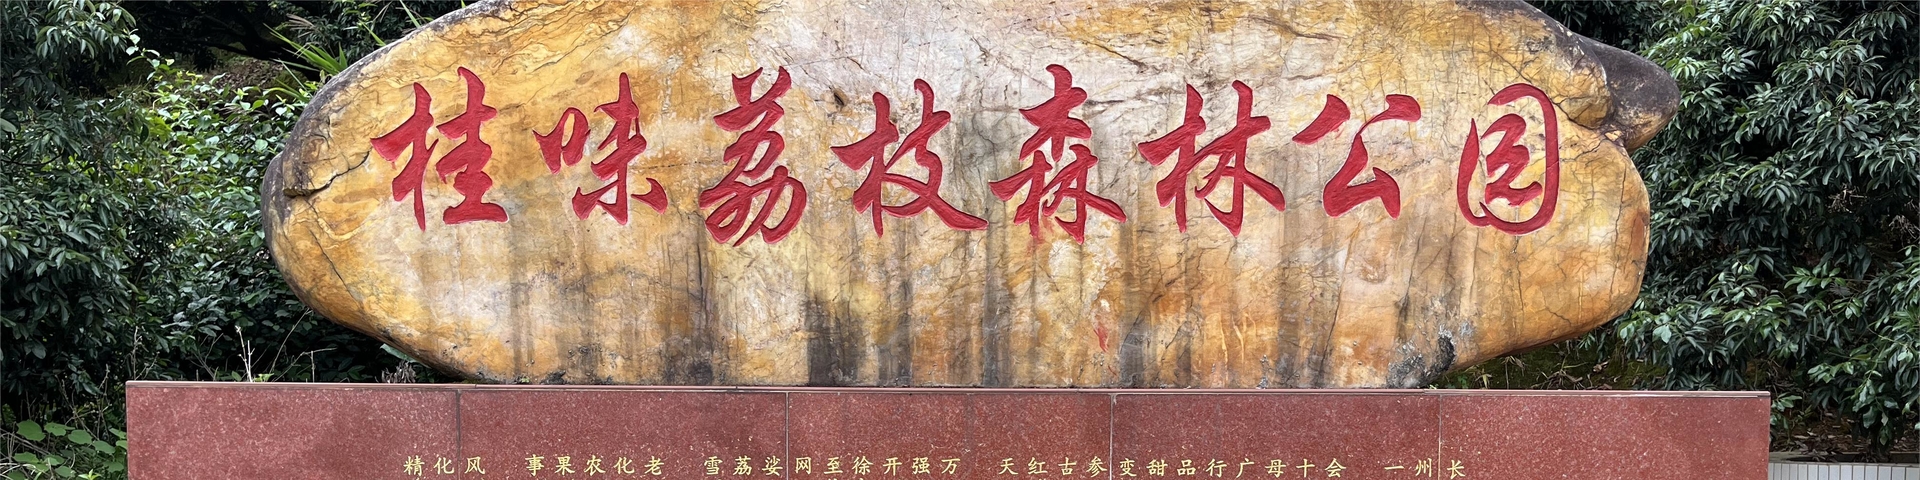 桂味荔枝森林公园
精化风 事果农化老 雪荔娑网至徐开强万 天红古参变甜品行广母十会 一州长